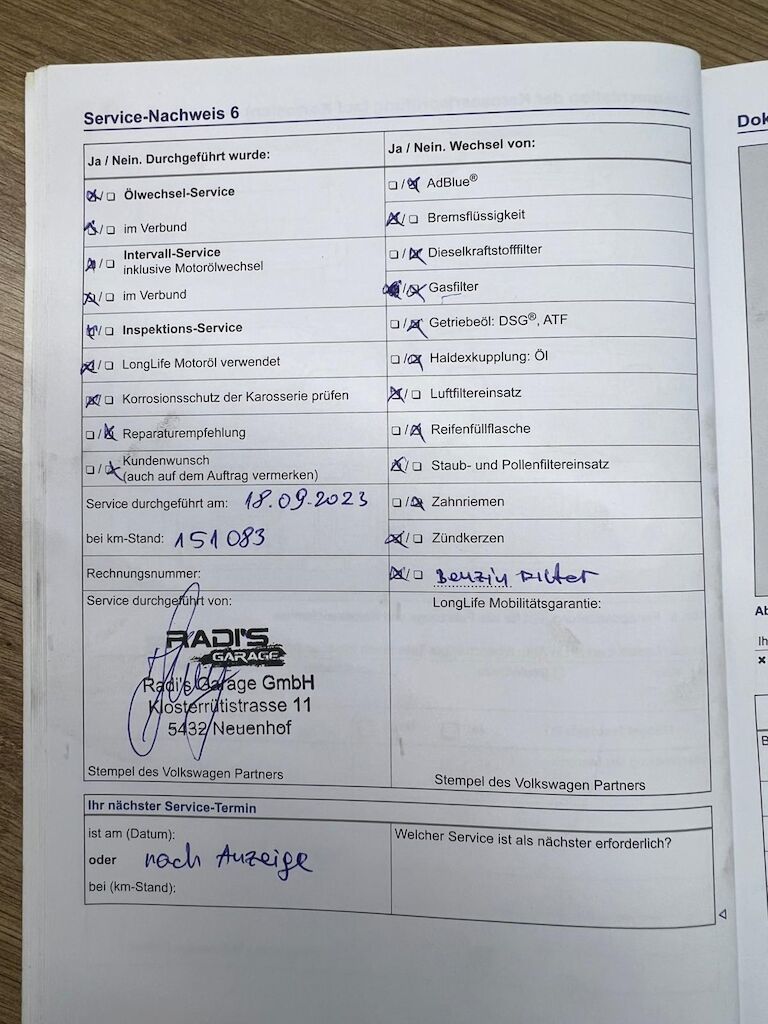 Service-Nachweis 6
Dok
Ja / Nein. Durchgeführt wurde:
Ja / Nein. Wechsel von:
Ölwechsel-Service
AdBlue®
im Verbund
Bremsflüssigkeit
Intervall-Service
inklusive Motorölwechsel
Dieselkraftstofffilter
im Verbund
Gasfilter
Inspektions-Service
Getriebeöl: DSG®, ATF
LongLife Motoröl verwendet
Haldexkupplung: Öl
Korrosionsschutz der Karosserie prüfen
Luftfiltereinsatz
Reparaturempfehlung
Reifenfüllflasche
Kundenwunsch
(auch auf dem Auftrag vermerken)
Staub- und Pollenfiltereinsatz
Service durchgeführt am: 18.09.2023
Zahnriemen
bei km-Stand: 151083
Zündkerzen
Rechnungsnummer:
Benzin Filter
Service durchgeführt von:
LongLife Mobilitätsgarantie:
RADI'S
GARAGE
Radi's Garage GmbH
Klosterrütistrasse 11
5432 Neuenhof
Stempel des Volkswagen Partners
Stempel des Volkswagen Partners
Ihr nächster Service-Termin
ist am (Datum):
Welcher Service ist als nächster erforderlich?
oder nach Anzeige
bei (km-Stand):
Ab
Ih